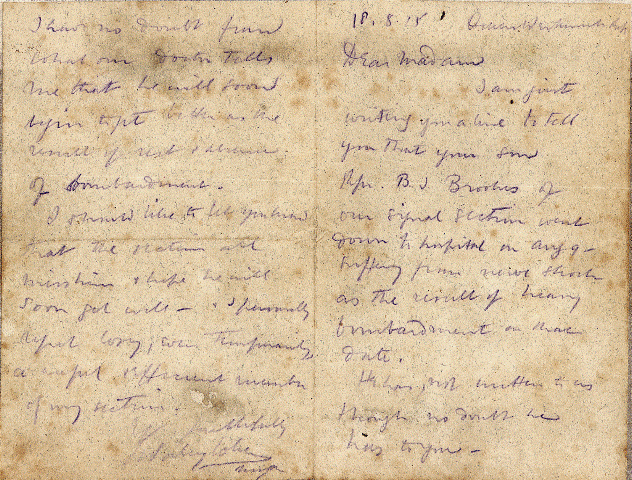 18.8.15
Dear Madam
I am just
writing you a line to tell
you that your son
B.J. Brookes of
our signal section went
down to hospital on Aug 9
suffering from nerve shock
as the result of heavy
bombardment on that
date.
He has not written to us
though no doubt he
has to you -
I have no doubt from
what our doctor tells
me that he will soon
begin to get better as the
result of rest & absence
of bombardment.
I should like to let you know
that the section all
miss him & hope he will
soon get well - & I personally
regret losing, even temporarily,
a useful & efficient member
of my section.
faithfully